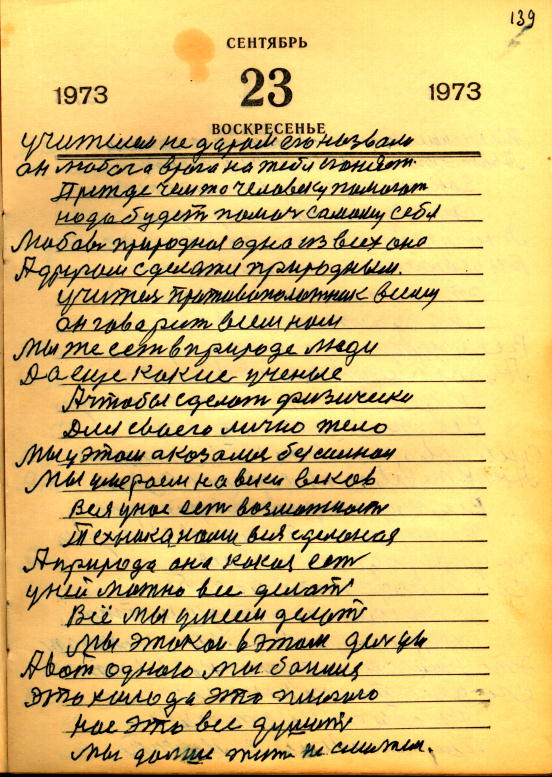 139
СЕНТЯБРЬ
1973 23 1973
ВОСКРЕСЕНЬЕ
учителем не даром его назвали
он любого врага на тебя
Прежде чем то человеку помогат
надо будет помоч самому себя
Любовь природная одна из всех она
А другом сделаже природным.
учителя противоположник всему
он говорит всем нам
Мы же есть в природе люди
Да еще какие ученые
А чтобы сделат физически
Для своего лично тело
Мы у этом аказалис бессилнаи
Мы умераем на веки веков
Вся у нас ест возможност
Техника наша вся сделоная
А природа она какая ест
у ней можно все делат
Всё мы умеем делат
Мы этакаи в этом
А вот одного мы боимся
это холода это плохого
нас это все душит
мы далше жит не сможем.